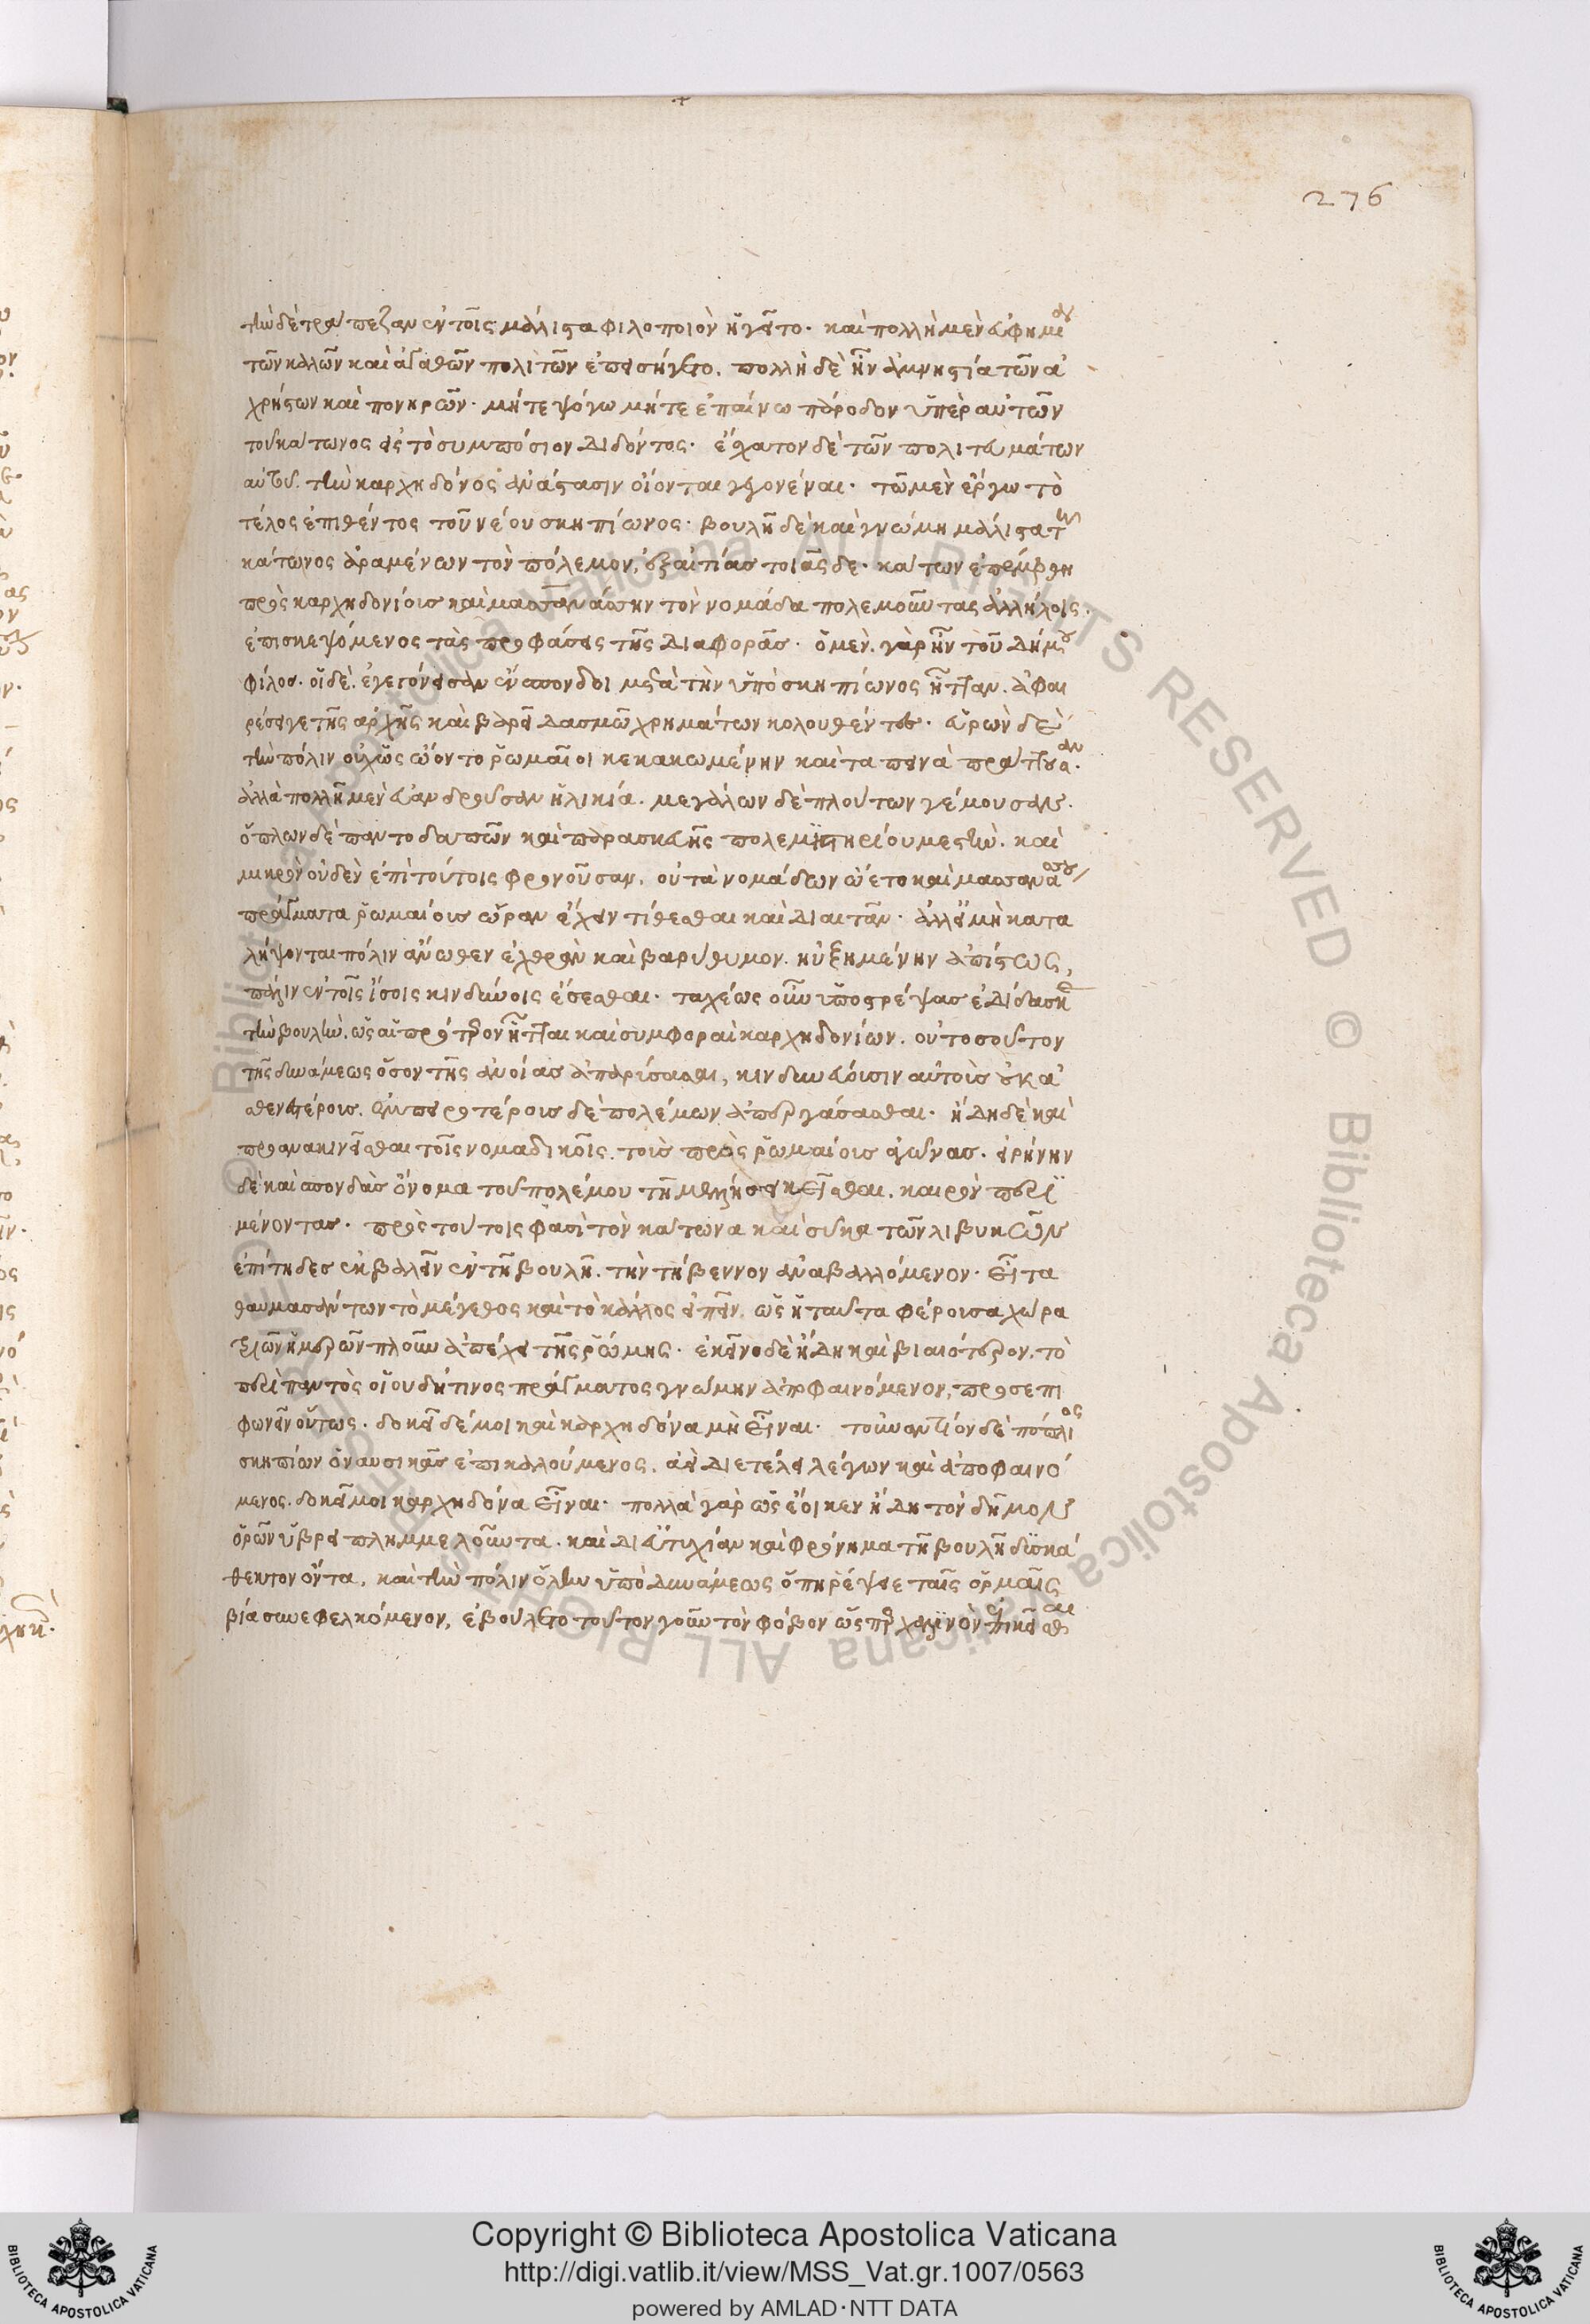 276
τὴν δὲ τράπεζαν ἐν τοῖς μάλιστα φιλοποιὸν ἡγεῖτο. καὶ πολλὴ μὲν εὐφημία
τῶν καλῶν καὶ ἀγαθῶν πολιτῶν ἐπεισήγετο. πολλὴ δὲ ἦν ἀμνηστία τῶν ἀ
χρήστων καὶ πονηρῶν. μήτε ψόγω μήτε ἐπαίνω πάροδον ὑπὲρ αὐτῶν
τοῦ κάτωνος εἰς τὸ συμπόσιον διδόντος. ἔσχατον δὲ τῶν πολιτευμάτων
αὐτοῦ. τὴν καρχηδόνος ἀνάστασιν οἴονται γεγονέναι. τῶ μὲν ἔργω τὸ
τέλος ἐπιθέντος τοῦ νέου σκηπίωνος. βουλῆ δὲ καὶ γνώμη μάλιστα τῆ
κάτωνος ἀραμένων τὸν πόλεμον, ἐξ αἰτίας τοιᾶς δε. κάτων ἐπέμφθη
πρὸς καρχηδονίοις καὶ μασσανάσσην τὸν νομάδα πολεμοῦντας ἀλλήλοις.
ἐπισκεψόμενος τὰς προφάσεις τῆς διαφορᾶς. ὁ μὲν. γὰρ ἦν τοῦ δήμου
φίλος. οἱ δὲ. ἐγεγόνεισαν ἔνσπονδοι μετὰ τὴν ὑπὸ σκηπίωνος ἧτταν. ἀφαι
ρέσει γε τῆς ἀρχῆς καὶ βαρεῖ δασμῶ χρημάτων κολουθέντες. εὑρὼν δὲ
τὴν πόλιν οὐχ ὡς ὤοντο ῥωμαῖοι κεκακωμένην καὶ ταπεινὰ πράττουσαν.
ἀλλὰ πολλῆ μὲν εὐανδροῦσαν ἡλικία. μεγάλων δὲ πλούτων γέμουσαν.
ὅπλων δὲ παντοδαπῶν καὶ παρασκευῆς πολεμιστηρίου μεστὴν. καὶ
μικρὸν οὐδὲν ἐπὶ τούτοις φρονοῦσαν. οὐ τὰ νομάδων ὤετο καὶ μασσανάσσου
πράγματα ῥωμαίοις ὥραν ἔχειν τίθεσθαι καὶ διαιτᾶν. ἀλλ' εἰ μὴ κατα
λήψονται πόλιν ἄνωθεν ἐχθρὰν καὶ βαρύθυμον. ηὐξημένην ἀπίστως,
πάλιν ἐν τοῖς ἴσοις κινδύνοις ἔσεσθαι. ταχέως οὖν ὑποστρέψας ἐδίδασκε
τὴν βουλὴν. ὡς αἱ πρότερον ἧτται καὶ συμφοραὶ καρχηδονίων. οὐ τοσοῦτον
τῆς δυνάμεως ὅσον τῆς ἀνοίας ἀπαρύσασθαι, κινδυνεύοισιν αὐτοὺς οὐκ ἀ
σθενεστέροις. ἐμπειροτέροις δὲ πολέμων ἀπεργάσασθαι. ἤδη δὲ καὶ
προανακινεῖσθαι τοῖς νομαδικοῖς. τοὺς πρὸς ῥωμαίοις ἀγῶνας. εἰρήνην
δὲ καὶ σπονδὰς ὄνομα τοῦ πολέμου τῆ μελλήσει κεῖσθαι. καιρὸν περι
μένοντας. πρὸς τούτοις φασὶ τὸν κάτωνα καὶ σῦκα τῶν λιβυκῶν
ἐπίτηδες ἐκβαλεῖν ἐν τῆ βουλῆ. τὴν τήβεννον ἀναβαλλόμενον. εἶτα
θαυμασάντων τὸ μέγεθος καὶ τὸ κάλλος εἰπεῖν. ὡς ἡ ταῦτα φέροισα χώρα
τριῶν ἡμερῶν πλοῦν ἀπέχει τῆς ῥώμης. ἐκεῖνο δὲ ἤδη καὶ βιαιότερον. τὸ
περὶ παντὸς οἱουδήτινος πράγματος γνώμην ἀποφαινόμενον, προσεπι
φωνεῖν οὕτως. δοκεῖ δέ μοι καὶ καρχηδόνα μὴ εἶναι. τοὐναντίον δὲ πόπλιος
σκηπίων ὁ ναυσικᾶς ἐπικαλούμενος. ἀεὶ διετέλει λέγων καὶ ἀποφαινό
μενος. δοκεῖ μοι καρχηδόνα εἶναι. πολλὰ γὰρ ὡς ἔοικεν ἤδη τὸν δῆμον
ὁρῶν ὕβρει πλημμελοῦντα. καὶ δι εὐτυχίαν καὶ φρόνημα τῆ βουλῆ δυσκά
θεκτον ὄντα, καὶ τὴν πόλιν ὅλην ὑπὸ δυνάμεως ὅπη ῥέψειε ταῖς ὁρμαῖς
βία συνεφελκόμενον, ἐβούλετο τοῦτον γοῦν τὸν φόβον ὥσπερ χαλινὸν ἐπικεῖσθαι
Copyright © Biblioteca Apostolica Vaticana
http://digi.vatlib.it/view/MSS_Vat.gr.1007/0563
powered by AMLAD·NTT DATA
BIBLIOTECA APOSTOLICA VATICANA
BIBLIOTECA APOSTOLICA VATICANA
© Biblioteca Apostolica Vaticana ALL RIGHTS RESERVED © Biblioteca Apostolica Vaticana ALL RIGHTS RESERVED